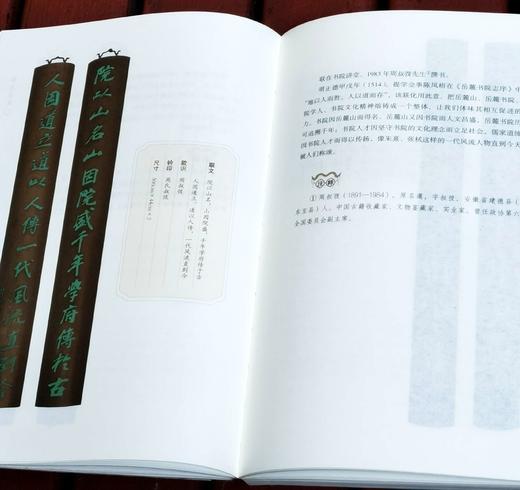 院以山名山因院盛千年學府傳於古
人因道立道以人傳一代風流直到今
联文
院以山名，山因院盛，千年学府传于古
人因道立，道以人传，一代风流直到今
款识
周叔弢
钤印
周氏叔弢
尺寸
联在书院讲堂。1983年周叔弢先生①撰书。
明正德甲戌年（1514），提学佥事陈凤梧在《岳麓书院志序》中
“地以人而胜，人以道而存”，该联化用此意，把岳麓山、岳麓书院、
院学人、书院文化精神熔铸成一个整体，让我们体味其相互促进的
书院因岳麓山而得名，岳麓山又因书院而人文昌盛，岳麓书院历
可追溯千年；书院人才因坚守书院的文化理念而立足社会，儒家道统
因书院人才而得以传扬，像朱熹、张栻这样的一代风流人物直到今天
被人们称颂。
注释
①周叔弢（1891—1984），原名暹，字叔弢，安徽省建德县（
东至县）人，中国古籍收藏家、文物鉴藏家、实业家，曾任政协第六
全国委员会副主席。